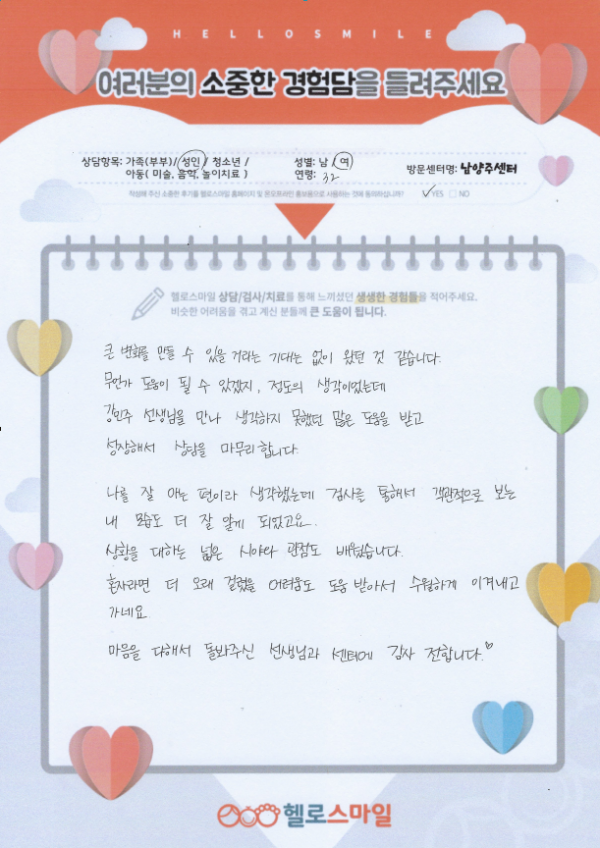 HELLOSMILE
여러분의 소중한 경험담을 들려주세요
상담항목: 가족(부부)/ 성인 / 청소년 /
아동( 미술, 음악, 놀이치료 )
성별: 남 / 여
연령: 32
방문센터명: 남양주센터
작성해 주신 소중한 후기를 헬로스마일 홈페이지 및 온오프라인 홍보용으로 사용하는 것에 동의하십니까? ✓YES □ NO
헬로스마일 상담/검사/치료를 통해 느끼셨던 생생한 경험들을 적어주세요.
비슷한 어려움을 겪고 계신 분들께 큰 도움이 됩니다.
큰 변화를 만들 수 있을 거라는 기대는 없이 왔던 것 같습니다.
무언가 도움이 될 수 있겠지, 정도의 생각이었는데
강민주 선생님을 만나 생각하지 못했던 많은 도움을 받고
성장해서 상담을 마무리합니다.
나를 잘 아는 편이라 생각했는데 검사를 통해서 객관적으로 보는
내 모습도 더 잘 알게 되었고요.
상황을 대하는 넓은 시야와 관점도 배웠습니다.
혼자라면 더 오래 걸렸을 어려움도 도움 받아서 수월하게 이겨내고
가네요.
마음을 다해서 돌봐주신 선생님과 센터에 감사 전합니다.♡
헬로스마일